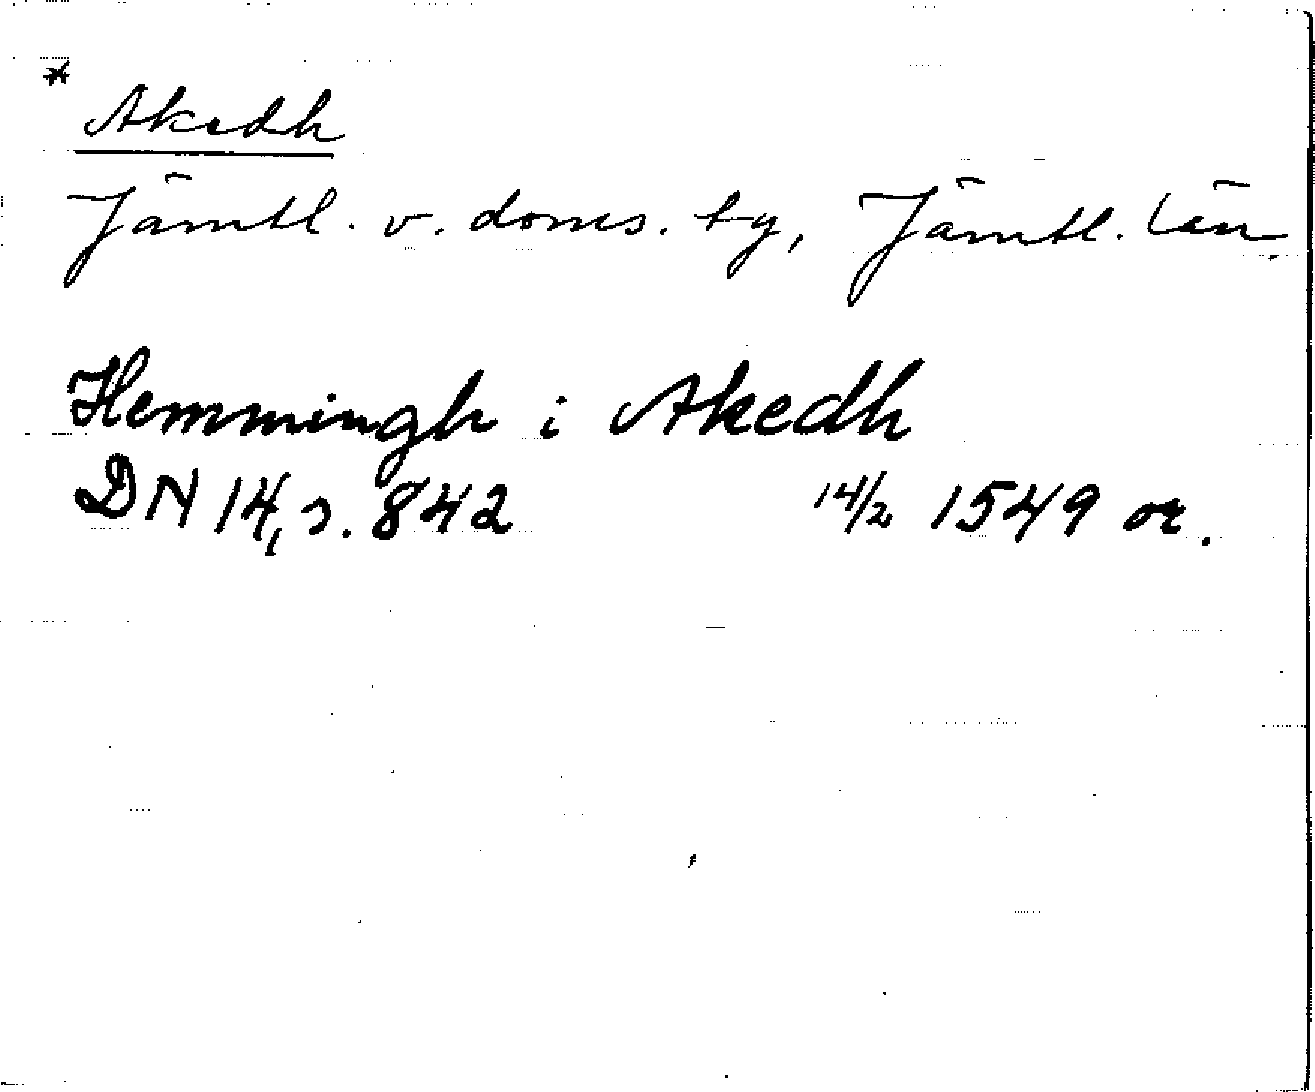 *
Akedh
Jämtl. v. doms. ty, Jämtl. län.
Hemmingh i Akedh
DN 14, s. 842 14/2 1549 or.